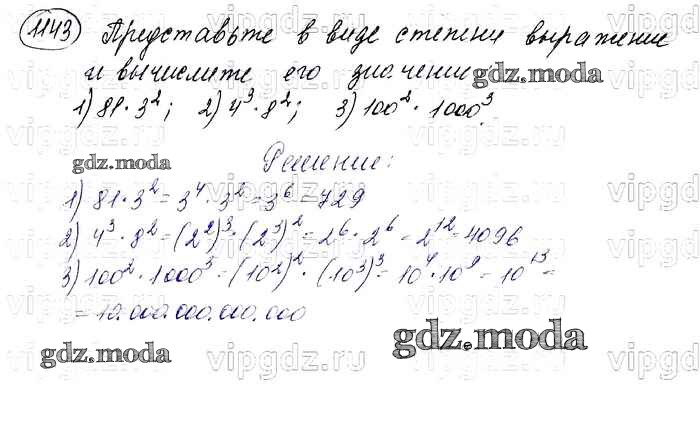 1143 Представьте в виде степени выражение
и вычислите его значение gdz.moda
1) 81·3²; 2) 4³·8²; 3) 100²·1000³.
gdz.moda Решение:
1) 81·3² = 3⁴·3² = 3⁶ = 729
2) 4³·8² = (2²)³·(2³)² = 2⁶·2⁶ = 2¹² = 4096
3) 100²·1000³ = (10²)²·(10³)³ = 10⁴·10⁹ = 10¹³ =
= 10.000.000.000.000
gdz.moda gdz.moda
vipgdz.ru